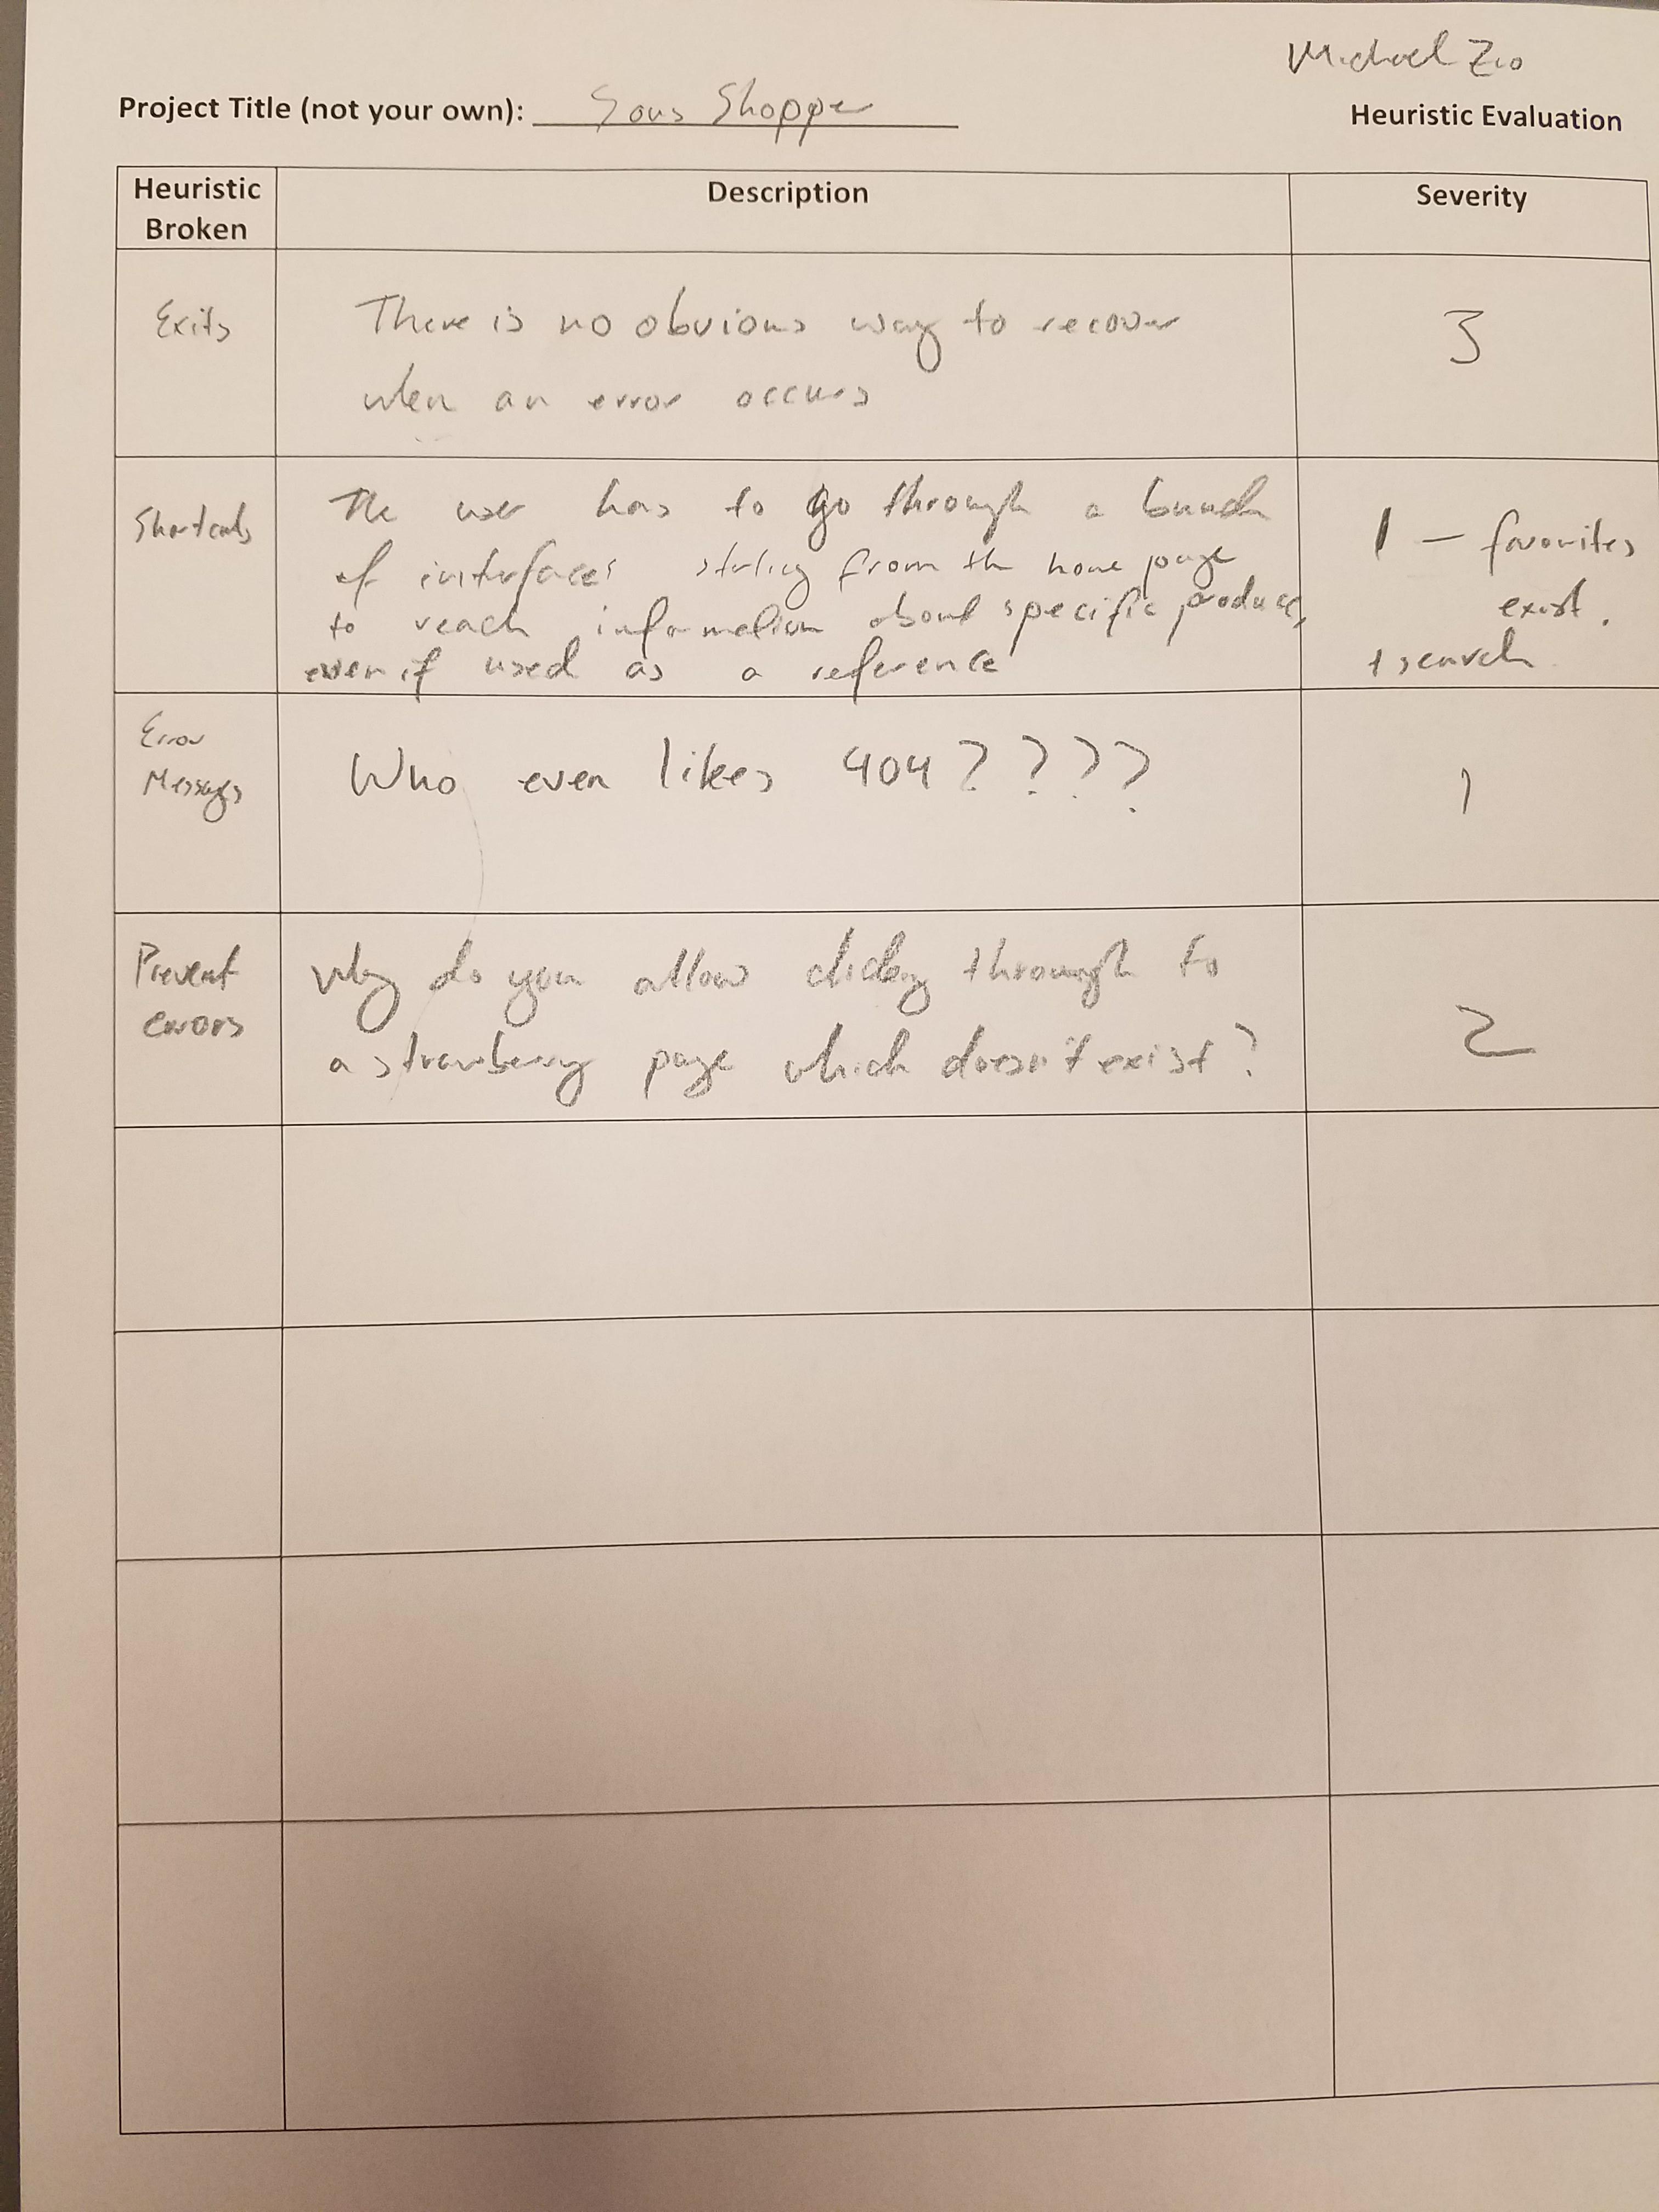 Michael Zuo
Project Title (not your own): Sous Shopper
Heuristic Evaluation
Heuristic
Broken
Description
Severity
Exits
There is no obvious way to recover
when an error occurs
3
Shortcuts
The user has to go through a bunch
of interfaces starting from the home page
to reach information about specific produce,
even if used as a reference
1 – favorites
exist.
+ search
Error
Messages
Who even likes 404????
1
Prevent
errors
Why do you allow clicking through to
a strawberry page which doesn't exist?
2